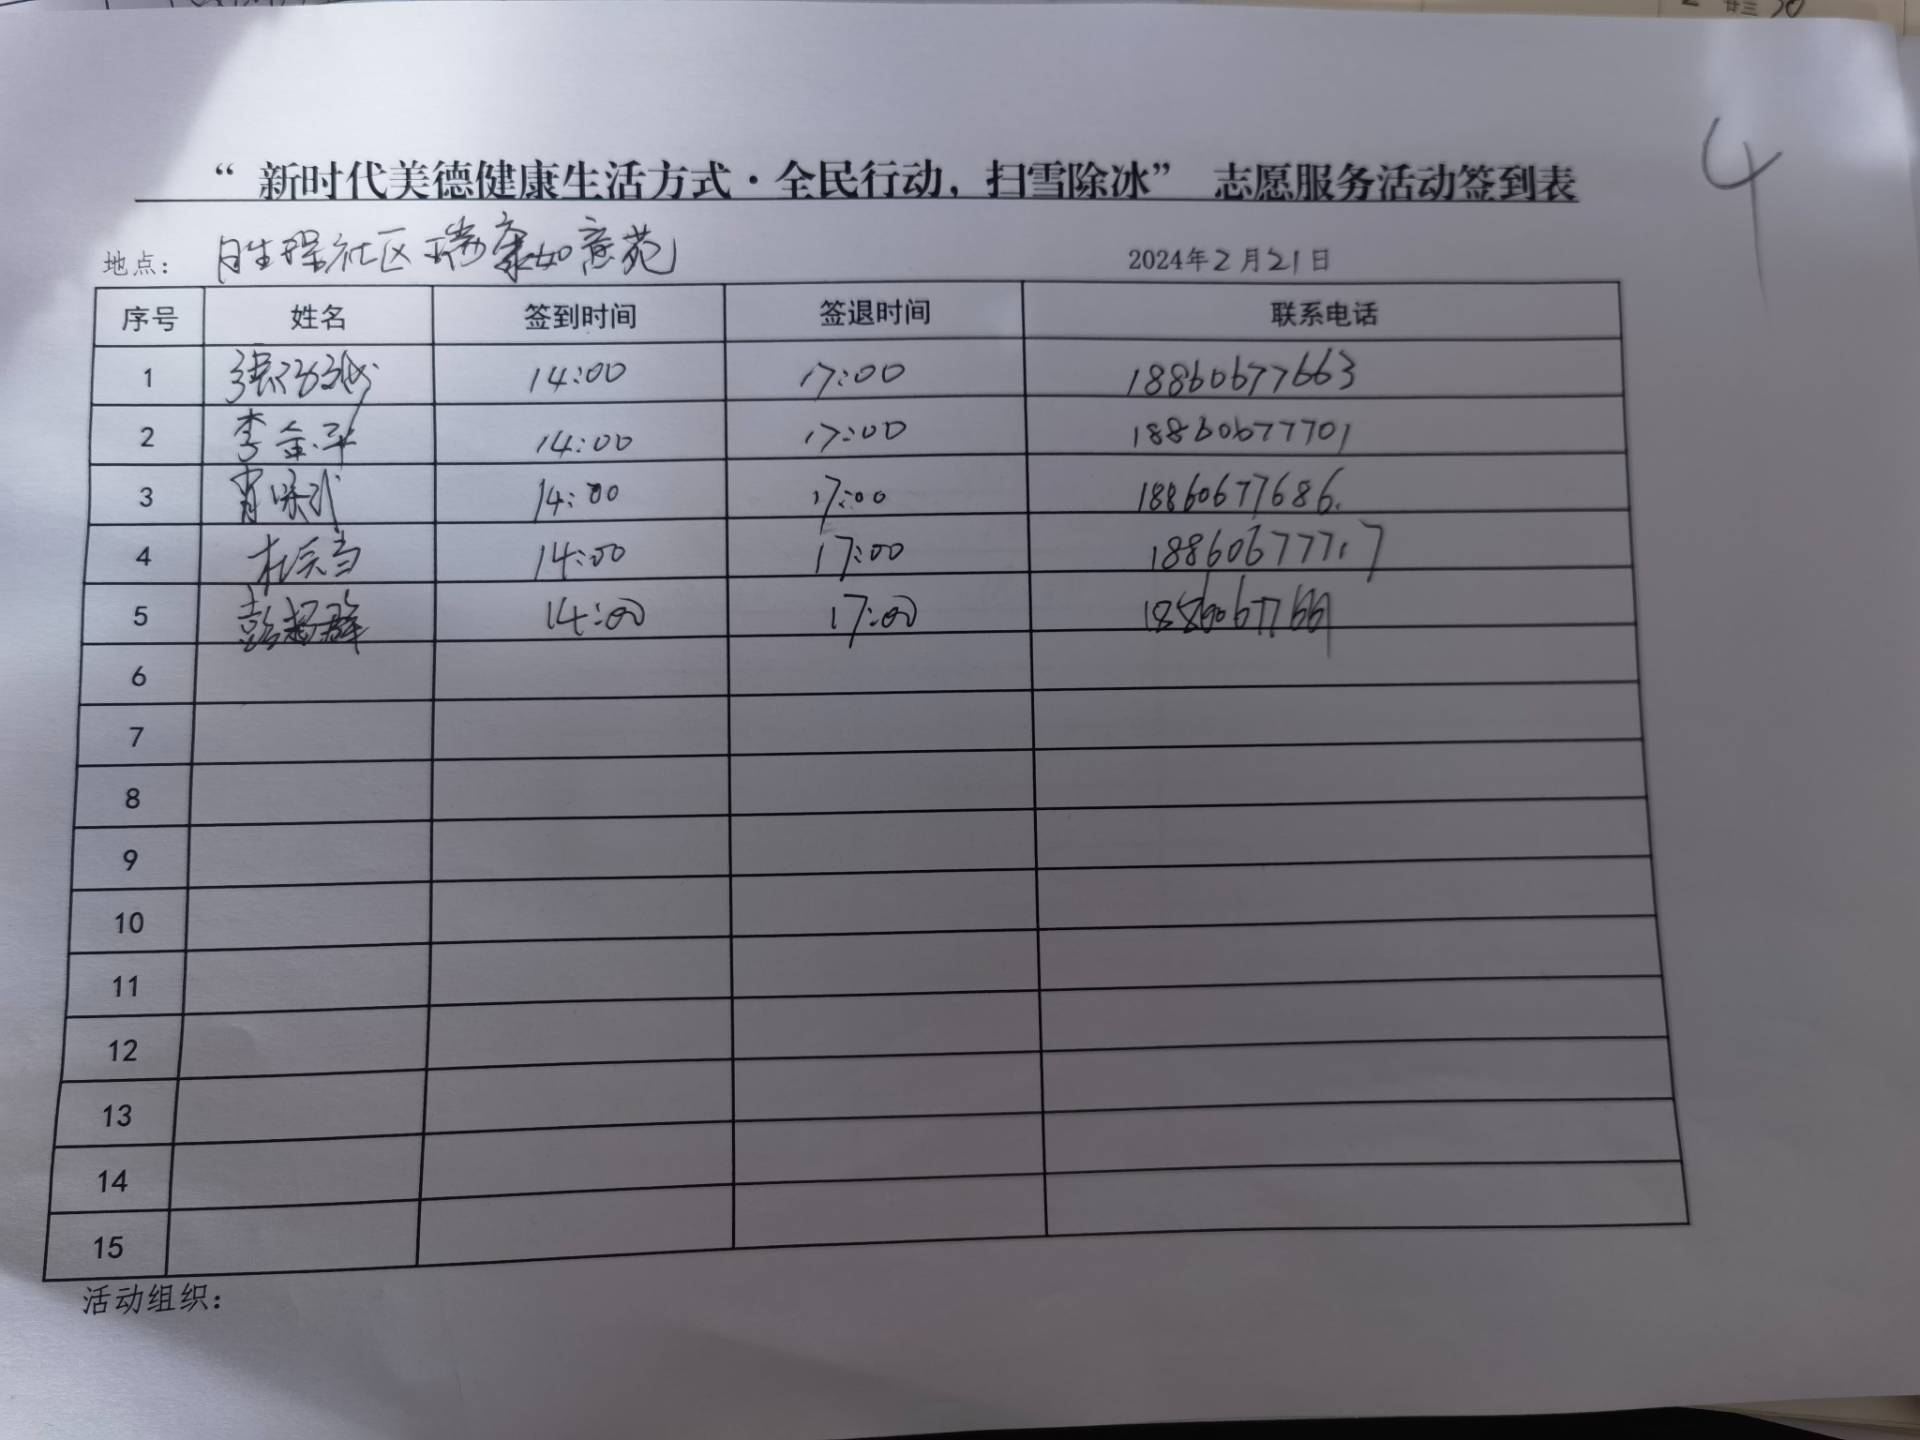 “ 新时代美德健康生活方式·全民行动，扫雪除冰” 志愿服务活动签到表
4
地点： 社区瑞康如意苑 2024年2月21日
序号 姓名 签到时间 签退时间 联系电话
1 14:00 17:00 18860677663
2 李金平 14:00 17:00 18860677701
3 14:00 17:00 18860677686.
4 14:00 17:00
5 彭 群 14:00 17:00
6
7
8
9
10
11
12
13
14
15
活动组织：